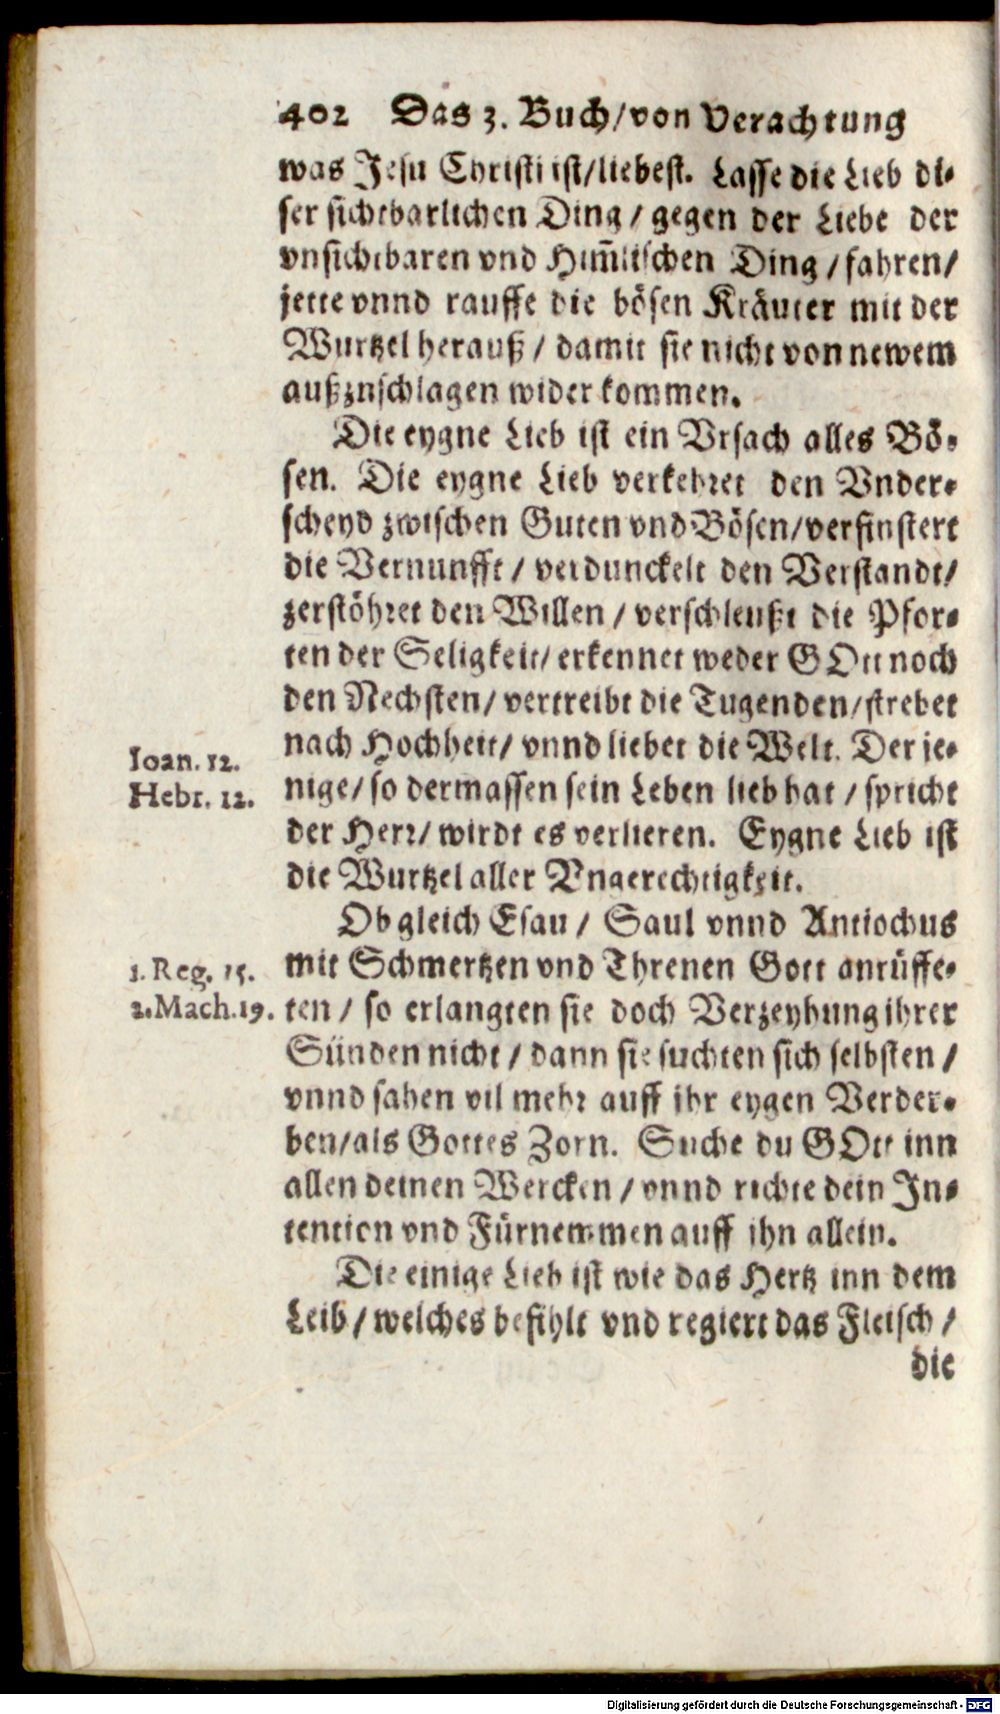 402 Das 3. Buch/von Verachtung
was Jesu Christi ist/liebest. Lasse die Lieb di-
ser sichtbarlichen Ding / gegen der Liebe der
vnsichtbaren vnd Him̃lischen Ding / fahren/
jette vnnd rauffe die bösen Kräuter mit der
Wurtzel herauß / damit sie nicht von newem
außznschlagen wider kommen.
Die eygne Lieb ist ein Vrsach alles Bö-
sen. Die eygne Lieb verkehret den Vnder-
scheyd zwischen Guten vnd Bösen/verfinstert
die Vernunfft / verdunckelt den Verstandt/
zerstöhret den Willen / verschleußt die Pfor-
ten der Seligkeit/ erkennet weder GOtt noch
den Nechsten/ vertreibt die Tugenden/strebet
nach Hochheit/ vnnd liebet die Welt. Der je-
Ioan. 12.
nige/ so dermassen sein Leben lieb hat / spricht
Hebr. 12.
der Herr/ wirdt es verlieren. Eygne Lieb ist
die Wurtzel aller Vngerechtigkeit.
Ob gleich Esau / Saul vnnd Antiochus
mit Schmertzen vnd Threnen Gott anrüffe-
1. Reg. 15.
ten / so erlangten sie doch Verzeyhung ihrer
2. Mach. 19.
Sünden nicht / dann sie suchten sich selbsten /
vnnd sahen vil mehr auff ihr eygen Verder-
ben/als Gottes Zorn. Suche du GOtt inn
allen deinen Wercken / vnnd richte dein In-
tention vnd Fürnemmen auff ihn allein.
Die einige Lieb ist wie das Hertz inn dem
Leib / welches befihlt vnd regiert das Fleisch /
die
Digitalisierung gefördert durch die Deutsche Forschungsgemeinschaft - DFG